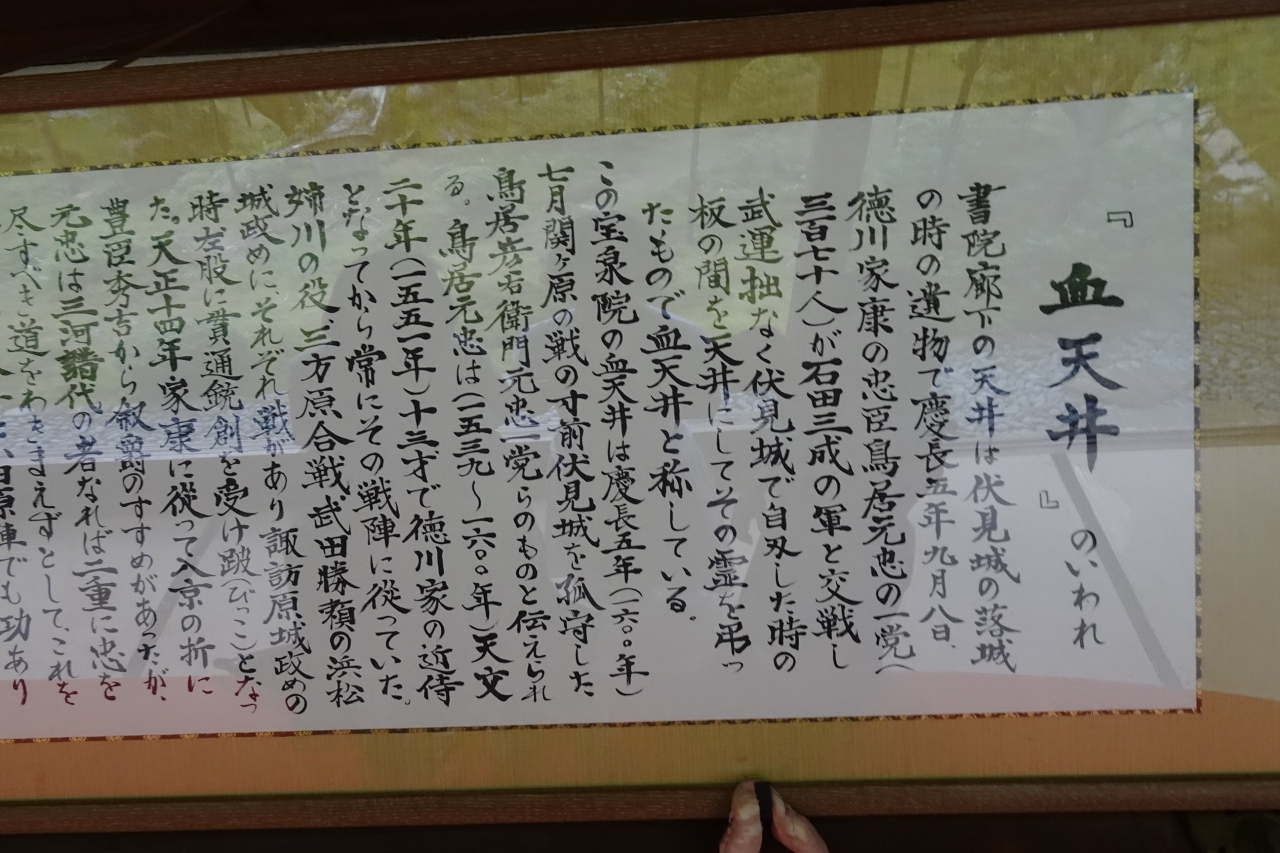 『血天井』のいわれ
書院廊下の天井は伏見城の落城
の時の遺物で慶長五年九月八日、
徳川家康の忠臣鳥居元忠の一党(
三百七十人)が石田三成の軍と交戦し
武運拙なく伏見城で自刃した時の
板の間を天井にしてその霊を弔っ
たもので血天井と称している。
この宝泉院の血天井は慶長五年(一六〇〇年)
七月関ヶ原の戦の寸前伏見城を孤守した
鳥居彦右衛門元忠一党らのものと伝えられ
る。鳥居元忠は(一五三九～一六〇〇年)天文
二十年(一五五一年)十三才で徳川家の近侍
となってから常にその戦陣に従っていた。
姉川の役、三方原合戦、武田勝頼の浜松
城政めに、それぞれ戦があり諏訪原城政めの
時左股に貫通銃創を受け跛(びっこ)となっ
た。天正十四年家康に従って入京の折に
豊臣秀吉から叙爵のすすめがあったが、
元忠は三河譜代の者なれば二重に忠を
尽すべき道をわきまえずとして、これを
田原陣でも功あり